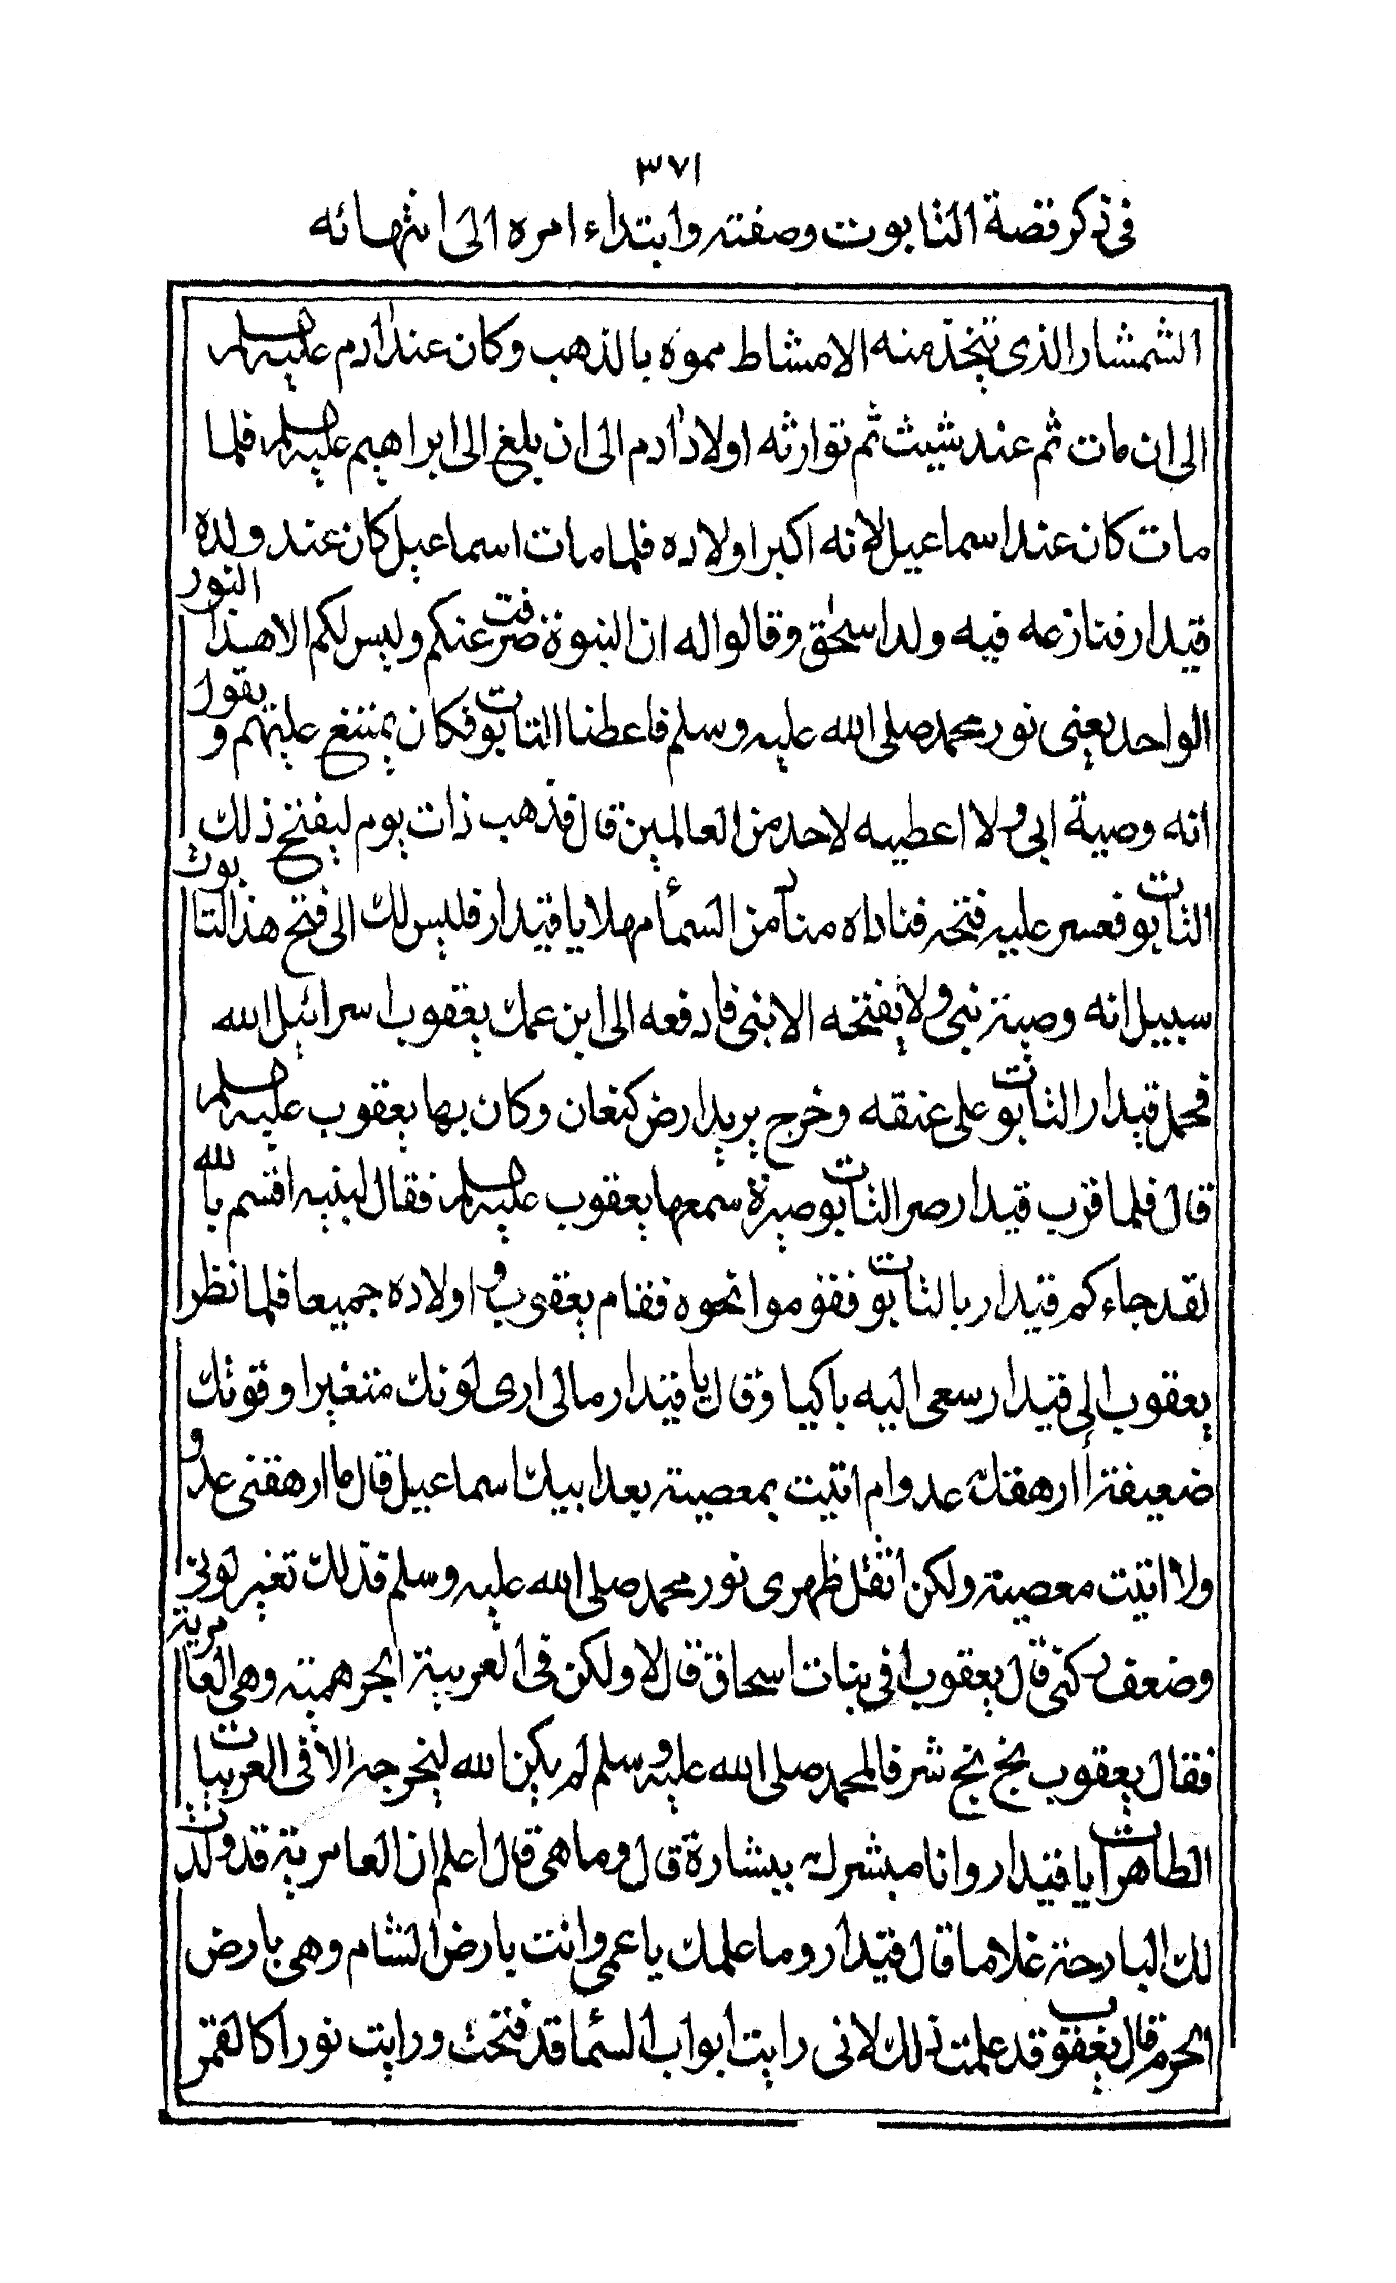 ٣٧١
فى ذكر قصة التابوت وصفته وابتداء امره الى انتهائه
الشمشار الذى تتخذ منه الامشاط مموه بالذهب وكان عند ادم عليه السلام
الى ان مات ثم عند شيث ثم توارثه اولاد ادم الى ان بلغ الى ابراهيم عليه السلام فلما
مات كان عند اسماعيل لانه اكبر اولاده فلما مات اسماعيل كان عند ولده
قيدار فنازعه فيه ولد اسحق وقالوا له ان النبوة صرفت عنكم وليس لكم الا هذا النور
الواحد يعنى نور محمد صلى الله عليه وسلم فاعطنا التابوت فكان يمتنع عليهم ويقول
انه وصية ابى ولا اعطيه لاحد من العالمين قال فذهب ذات يوم ليفتح ذلك
التابوت فعسر عليه فتحه فناداه مناد من السماء مهلا يا قيدار فليس لك الى فتح هذا التابوت
سبيل انه وصية نبى ولا يفتحه الا نبى فادفعه الى ابن عمك يعقوب اسرائيل الله
فحمل قيدار التابوت على عنقه وخرج يريد ارض كنعان وكان بها يعقوب عليه السلام
قال فلما قرب قيدار صر التابوت صرة سمعها يعقوب عليه السلام فقال لبنيه اقسم بالله
لقد جاءكم قيدار بالتابوت فقوموا نحوه فقام يعقوب واولاده جميعا فلما نظر
يعقوب الى قيدار سعى اليه باكيا وقال يا قيدار مالى ارى لونك متغيرا وقوتك
ضعيفة أارهقك عدو ام اتيت بمعصية بعد ابيك اسماعيل قال ما ارهقنى عدو
ولا اتيت معصية ولكن اثقل ظهرى نور محمد صلى الله عليه وسلم فذلك تغير لونى
وضعف ركنى قال يعقوب افى بنات اسحاق قال لا ولكن فى العربية الجرهمية وهى العامرية
فقال يعقوب بخ بخ شرفا لمحمد صلى الله عليه وسلم لم يكن الله ليخرجه الا فى العربيات
الطاهرات يا قيدار وانا مبشرك ببشارة قال وما هى قال اعلم ان العامرية قد ولدت
لك البارحة غلاما قال قيدار وما علمك يا عمى وانت بارض الشام وهى بارض
الحرم قال يعقوب قد علمت ذلك لانى رايت ابواب السما قد فتحت ورايت نورا كالقمر